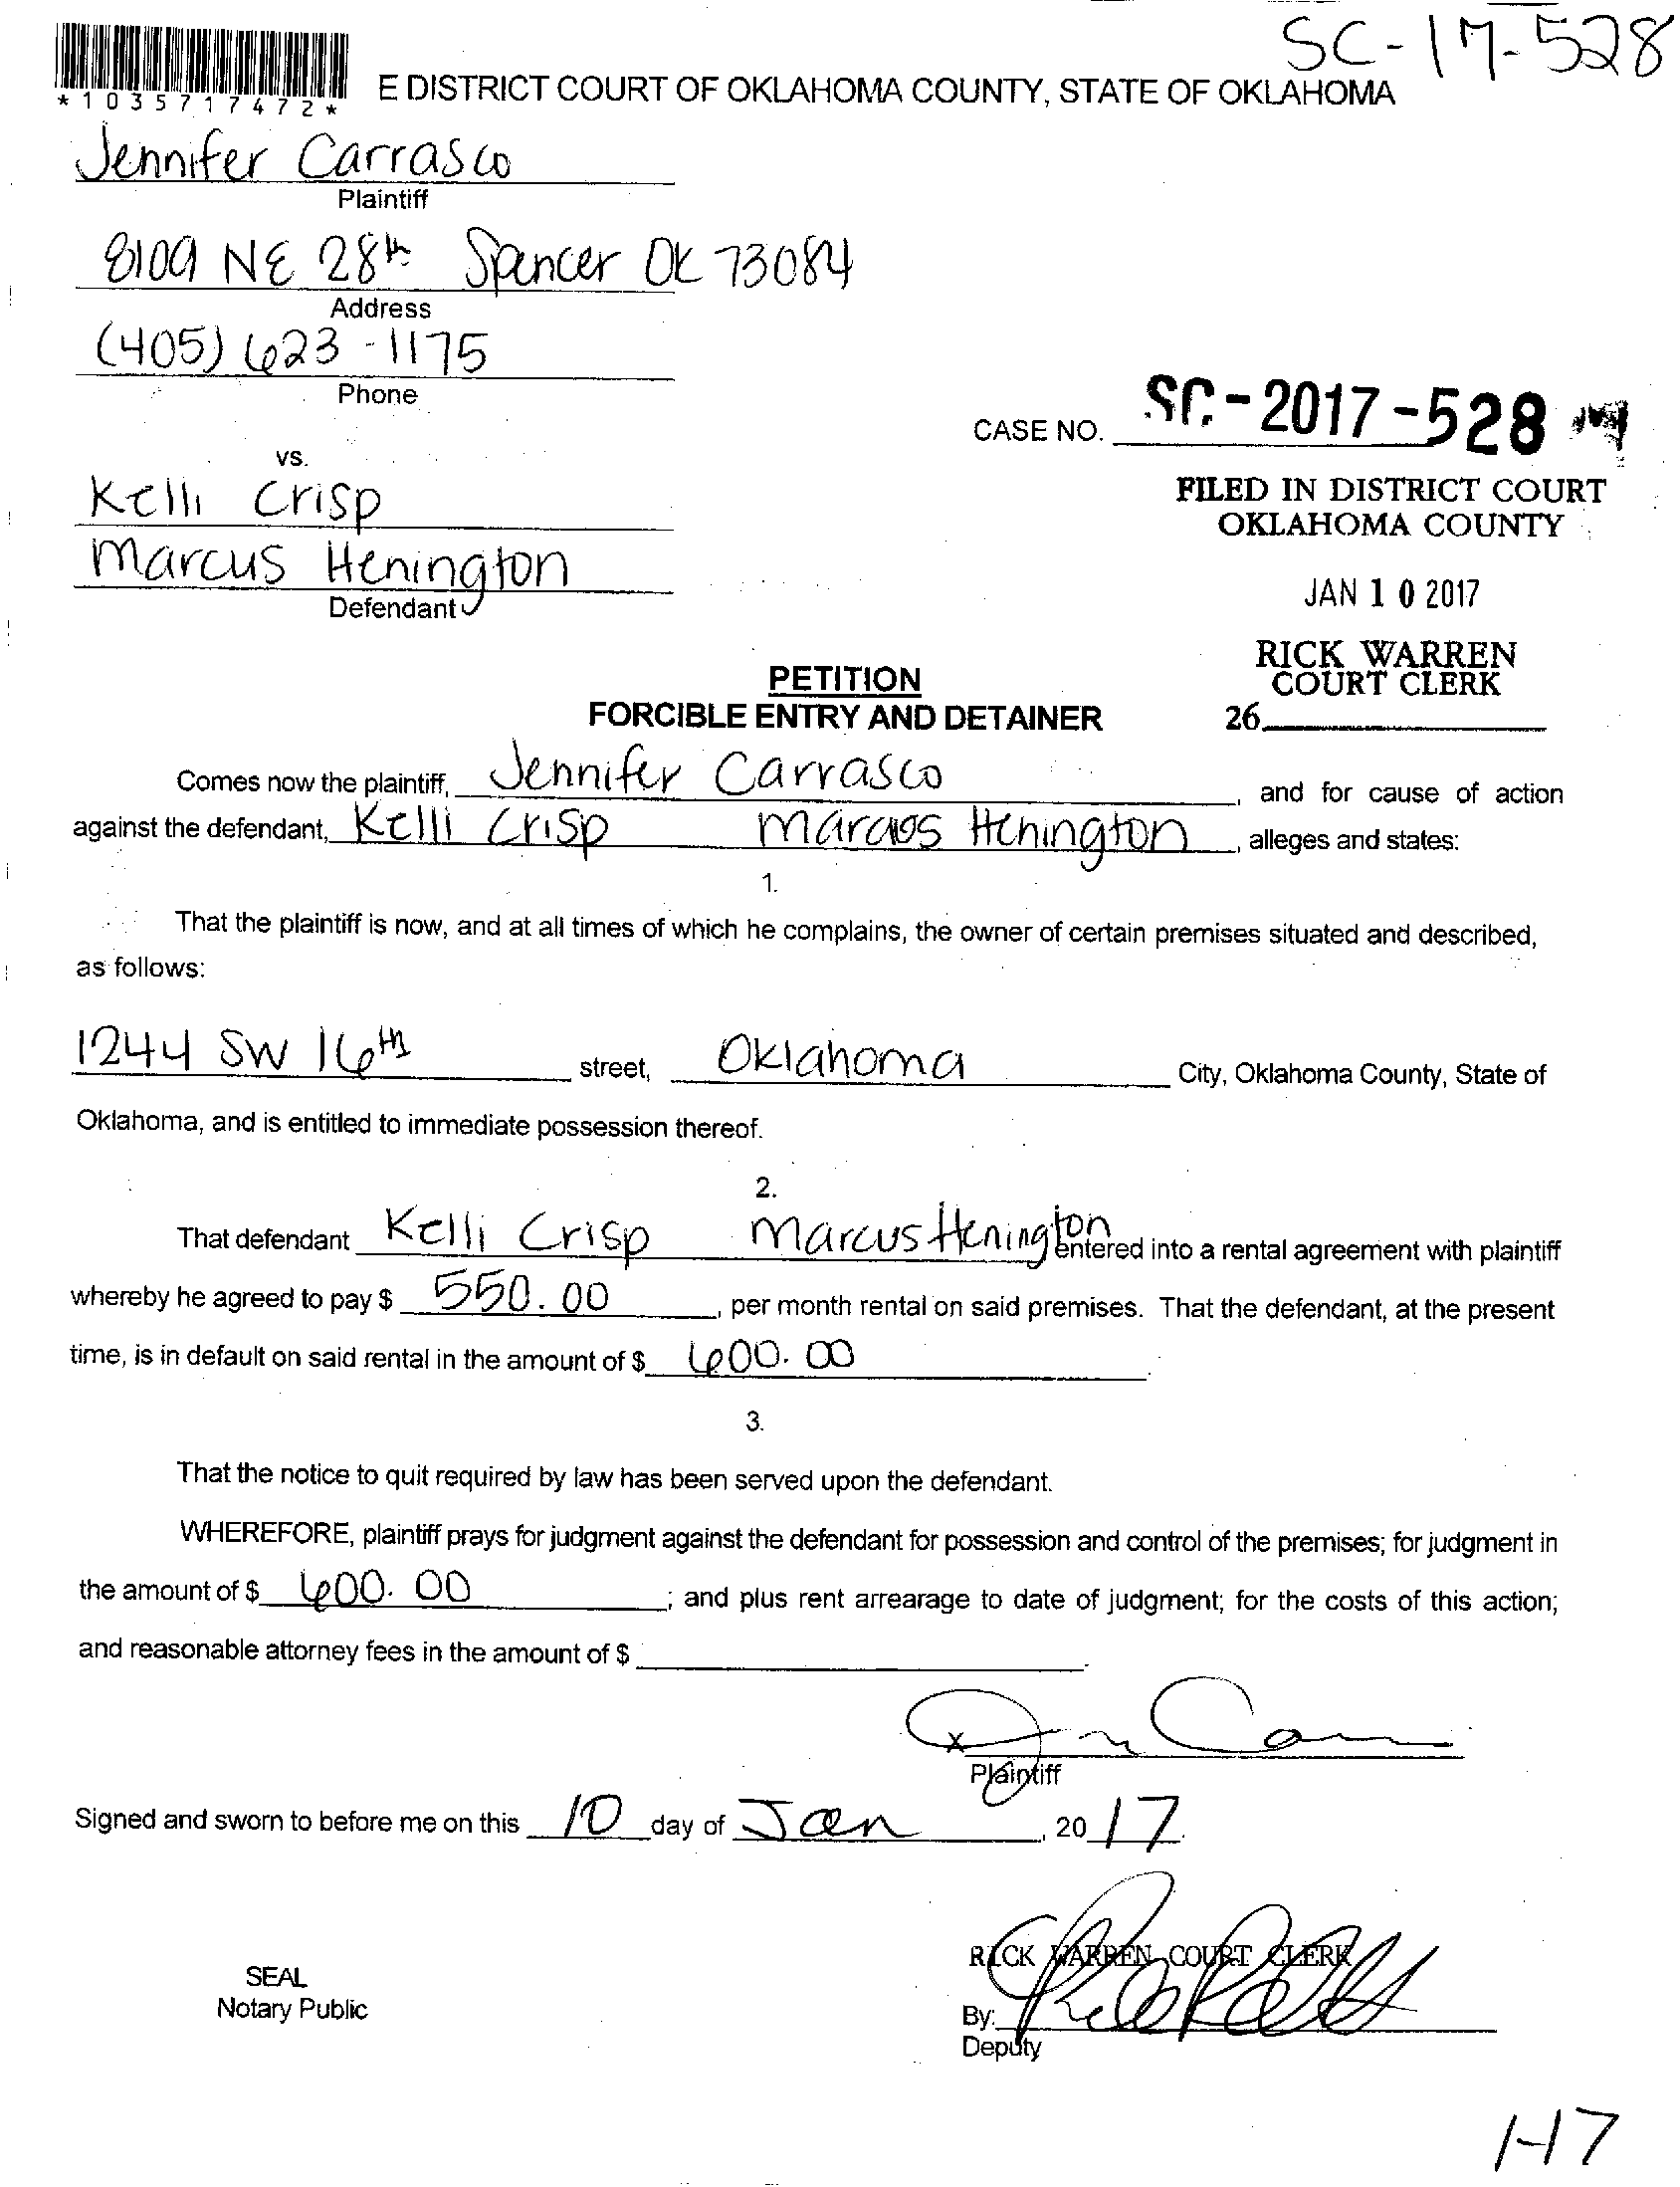 SC-17-528
*1035717472*
E DISTRICT COURT OF OKLAHOMA COUNTY, STATE OF OKLAHOMA
Jennifer Carrasco
Plaintiff
8109 NE 28th Spencer OK 73084
Address
(405) 623-1175
Phone
CASE NO. SC-2017-528
vs.
Kelli Crisp
FILED IN DISTRICT COURT
OKLAHOMA COUNTY
Marcus Henington
Defendant
JAN 10 2017
RICK WARREN
COURT CLERK
26
PETITION
FORCIBLE ENTRY AND DETAINER
Comes now the plaintiff, Jennifer Carrasco, and for cause of action
against the defendant, Kelli Crisp Marcus Henington, alleges and states:
1.
That the plaintiff is now, and at all times of which he complains, the owner of certain premises situated and described,
as follows:
1244 SW 16th street, Oklahoma City, Oklahoma County, State of
Oklahoma, and is entitled to immediate possession thereof.
2.
That defendant Kelli Crisp Marcus Henington entered into a rental agreement with plaintiff
whereby he agreed to pay $ 550.00, per month rental on said premises. That the defendant, at the present
time, is in default on said rental in the amount of $ 600.00.
3.
That the notice to quit required by law has been served upon the defendant.
WHEREFORE, plaintiff prays for judgment against the defendant for possession and control of the premises; for judgment in
the amount of $ 600.00; and plus rent arrearage to date of judgment; for the costs of this action;
and reasonable attorney fees in the amount of $
x
Plaintiff
Signed and sworn to before me on this 10 day of Jan, 2017.
RICK WARREN COURT CLERK
SEAL
Notary Public
By:
Deputy
1-17